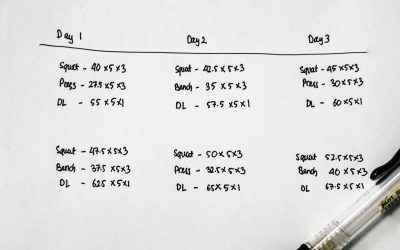 Day 1 Day 2 Day 3
Squat - 40 x 5 x 3 Squat - 42.5 x 5 x 3 Squat - 45 x 5 x 3
Press - 27.5 x 5 x 3 Bench - 35 x 5 x 3 Press - 30 x 5 x 3
DL - 55 x 5 x 1 DL - 57.5 x 5 x 1 DL - 60 x 5 x 1
Squat - 47.5 x 5 x 3 Squat - 50 x 5 x 3 Squat 52.5 x 5 x 3
Bench - 37.5 x 5 x 3 Press - 32.5 x 5 x 3 Bench 40 x 5 x 3
DL - 62.5 x 5 x 1 DL - 65 x 5 x 1 DL 67.5 x 5 x 1